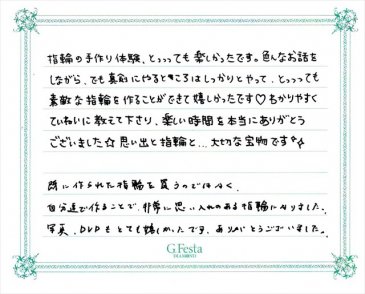 指輪の手作り体験、とっっっても楽しかったです。色んなお話を
しながら、でも真剣にやるところはしっかりとやって、とっっっても
素敵な指輪を作ることができて嬉しかったです♡わかりやすく
ていねいに教えて下さり、楽しい時間を本当にありがとう
ございました☆思い出と指輪と…大切な宝物です
既に作られた指輪を買うのではなく、
自分達で作ることで、非常に思い入れのある指輪になりました。
写真、DVDもとても嬉しかったです、ありがとうございました。
G.Festa